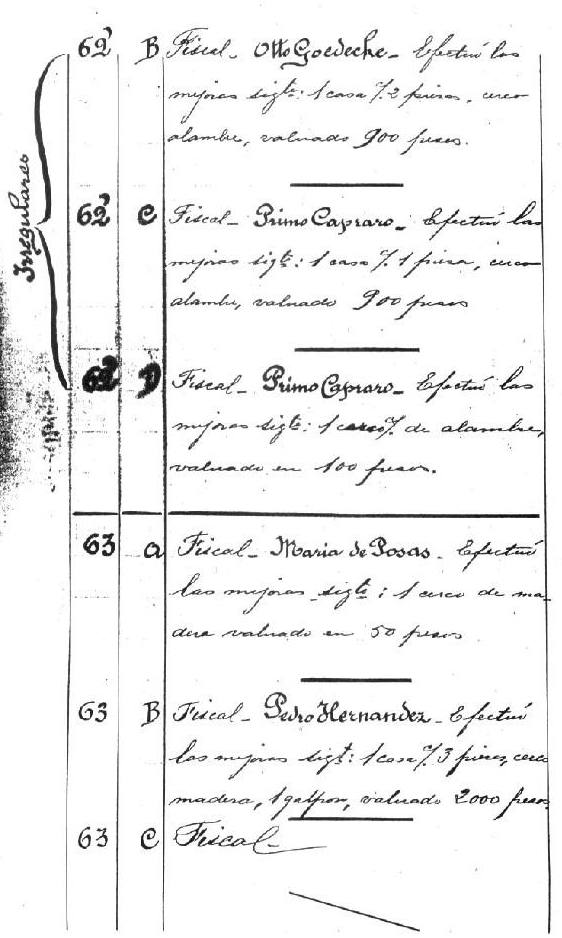 Irregulares
62 B Fiscal - Otto Goedecke - Efectuó las
mejoras sigts: 1 casa % 2 piezas, cerco
alambre, valuado 900 pesos.
62 C Fiscal - Primo Capraro - Efectuó las
mejoras sigts: 1 casa % 1 pieza, cerco
alambre, valuado 900 pesos
62 D Fiscal - Primo Capraro - Efectuó las
mejoras sigts: 1 cerco % de alambre,
valuado en 100 pesos.
63 a Fiscal - Maria de Posas - Efectuó
las mejoras sigts: 1 cerco de ma-
dera valuado en 50 pesos
63 B Fiscal - Pedro Hernandez - Efectuó
las mejoras sigts: 1 casa % 3 piezas, cerco
madera, 1 galpon, valuado 2000 pesos
63 C Fiscal